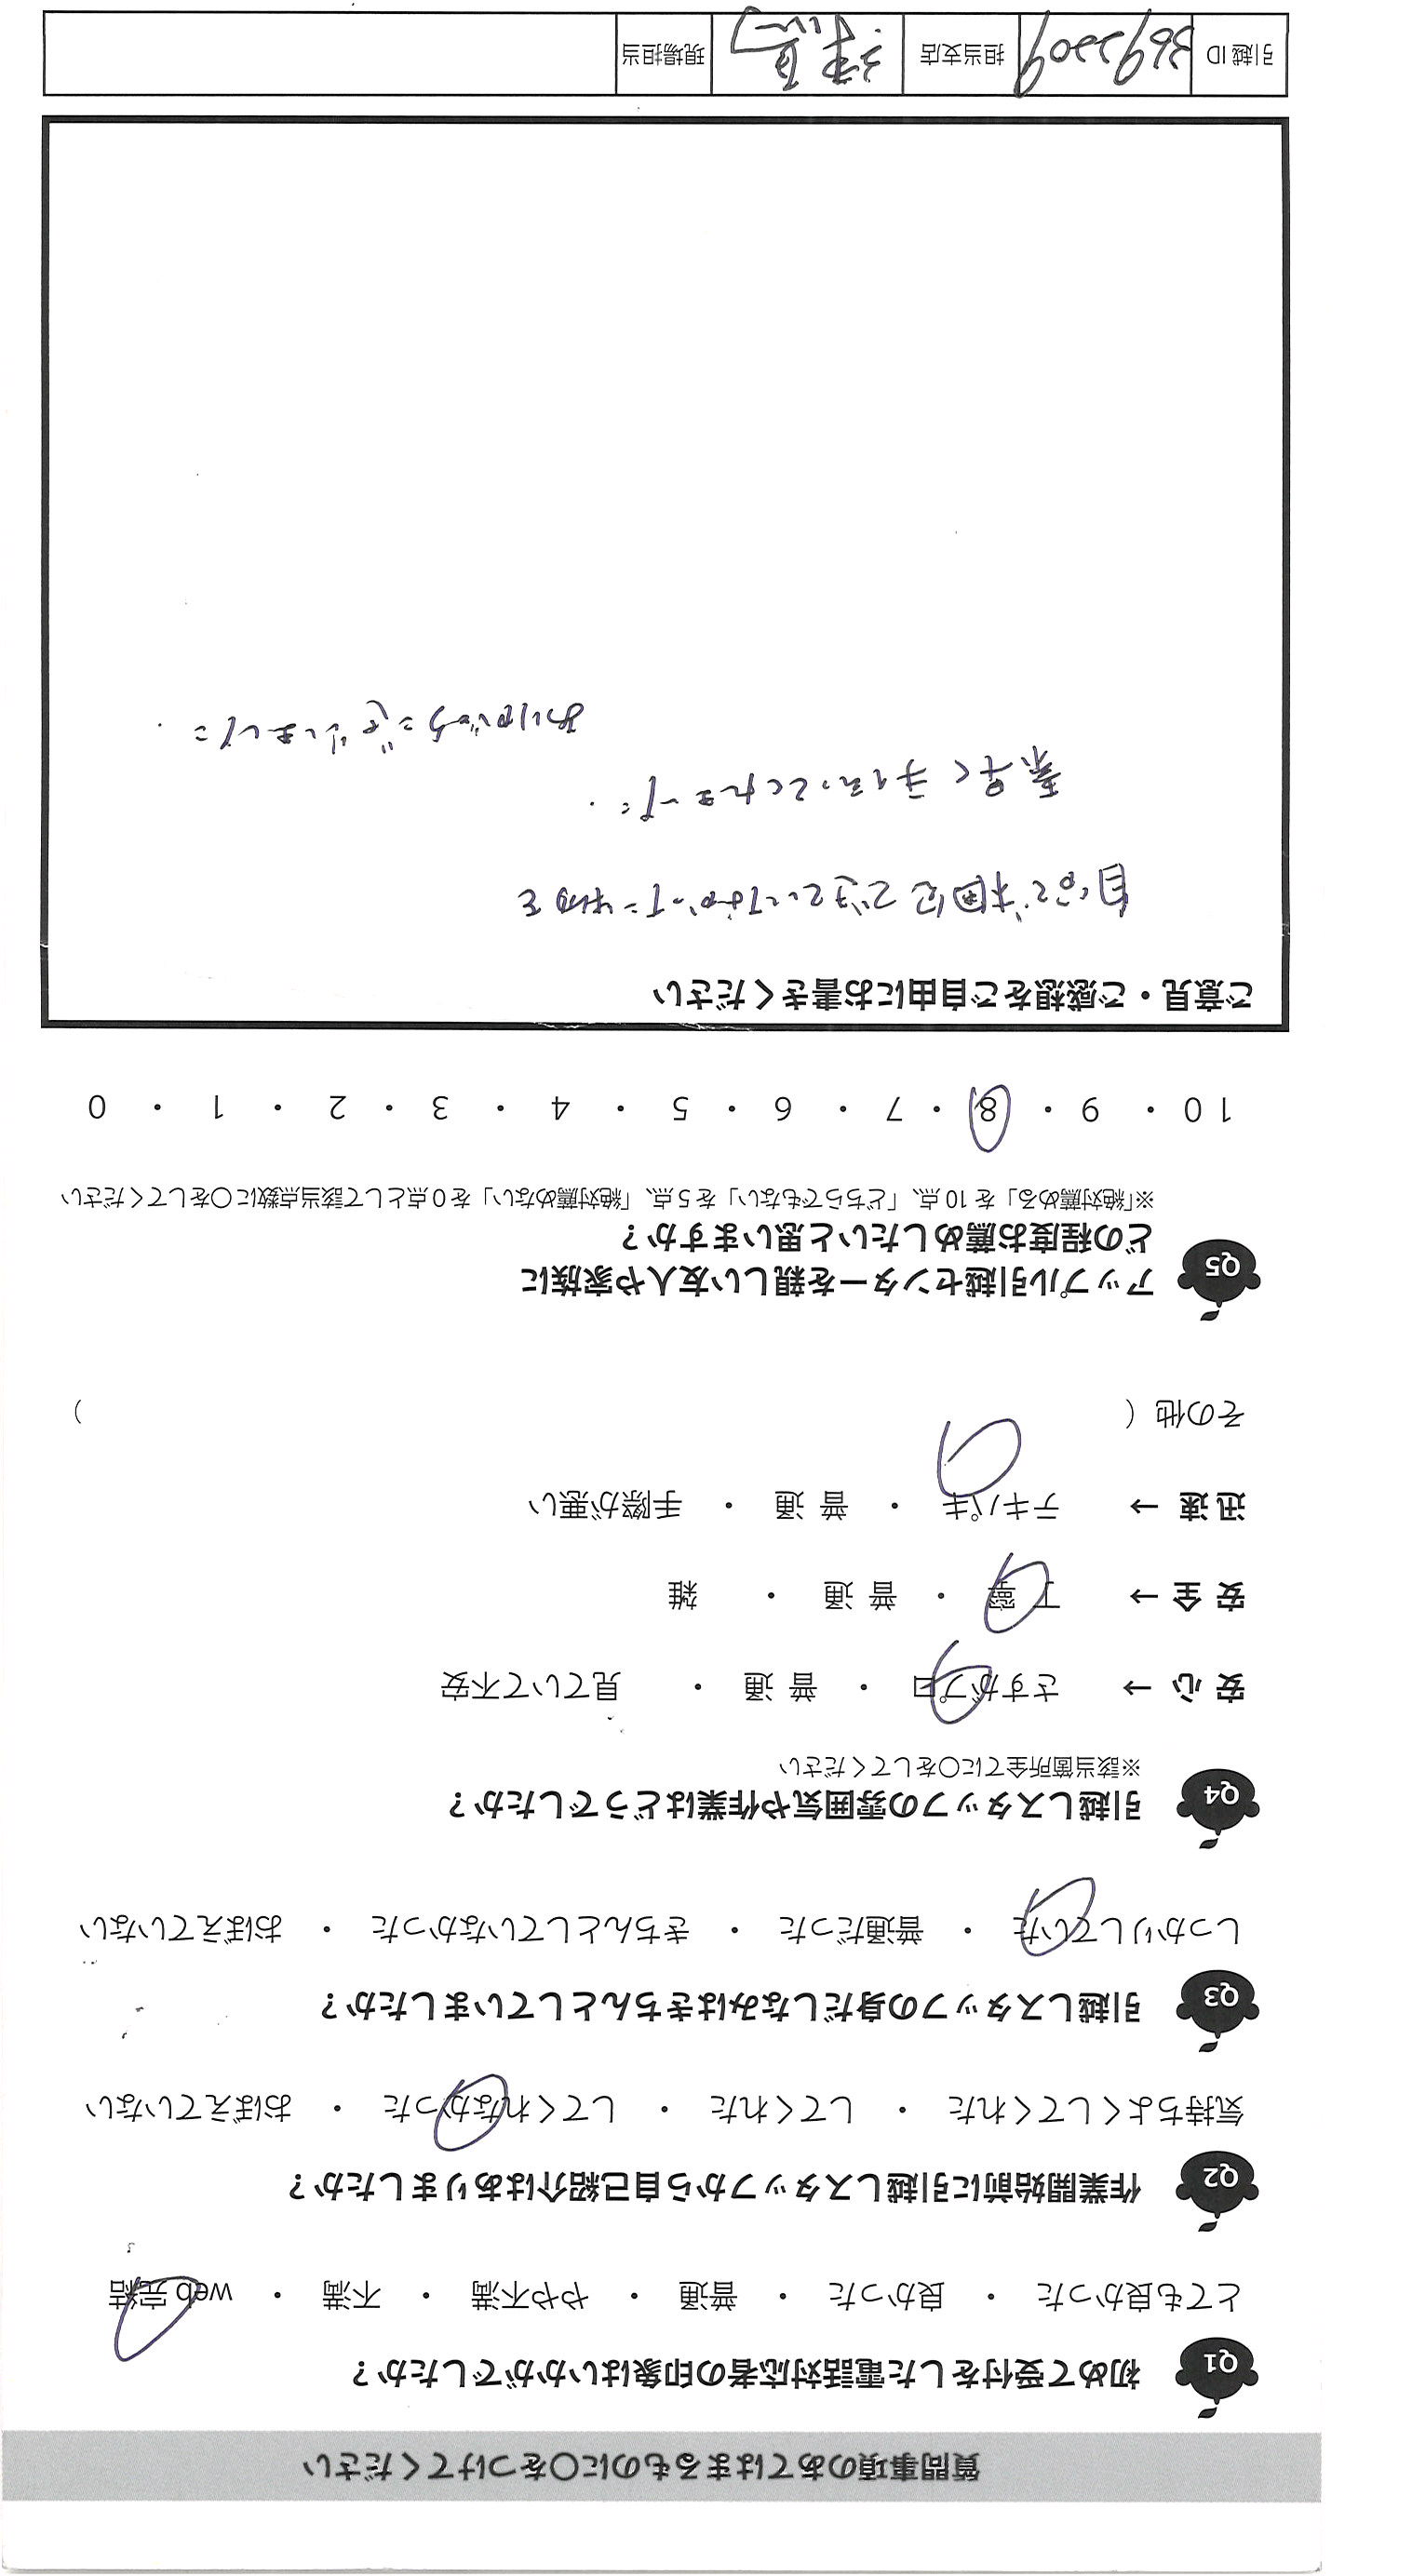 質問事項のあてはまるものに〇をつけてください
Q1 初めて受付をした電話対応者の印象はいかがでしたか？
とても良かった ・ 良かった ・ 普通 ・ やや不満 ・ 不満 ・ web 完結
Q2 作業開始前に引越しスタッフから自己紹介はありましたか？
気持ちよくしてくれた ・ してくれた ・ してくれなかった ・ おぼえていない
Q3 引越しスタッフの身だしなみはきちんとしていましたか？
しっかりしていた ・ 普通だった ・ きちんとしていなかった ・ おぼえていない
Q4 引越しスタッフの雰囲気や作業はどうでしたか？
※該当箇所全てに〇をしてください
安 心 → さすがプロ ・ 普 通 ・ 見ていて不安
安 全 → 丁 寧 ・ 普 通 ・ 雑
迅 速 → テキパキ ・ 普 通 ・ 手際が悪い
その他（ ）
Q5 アップル引越センターを親しい友人や家族に
どの程度お薦めしたいと思いますか？
※「絶対薦める」を 10 点、「どちらでもない」を 5 点、「絶対薦めない」を 0 点として該当点数に〇をしてください
10 ・ 9 ・ 8 ・ 7 ・ 6 ・ 5 ・ 4 ・ 3 ・ 2 ・ 1 ・ 0
ご意見・ご感想をご自由にお書きください
自分で梱包できていなかった物を
素早く手伝ってくれました。
ありがとうございました。
引越 ID 3692209 担当支店 現場担当